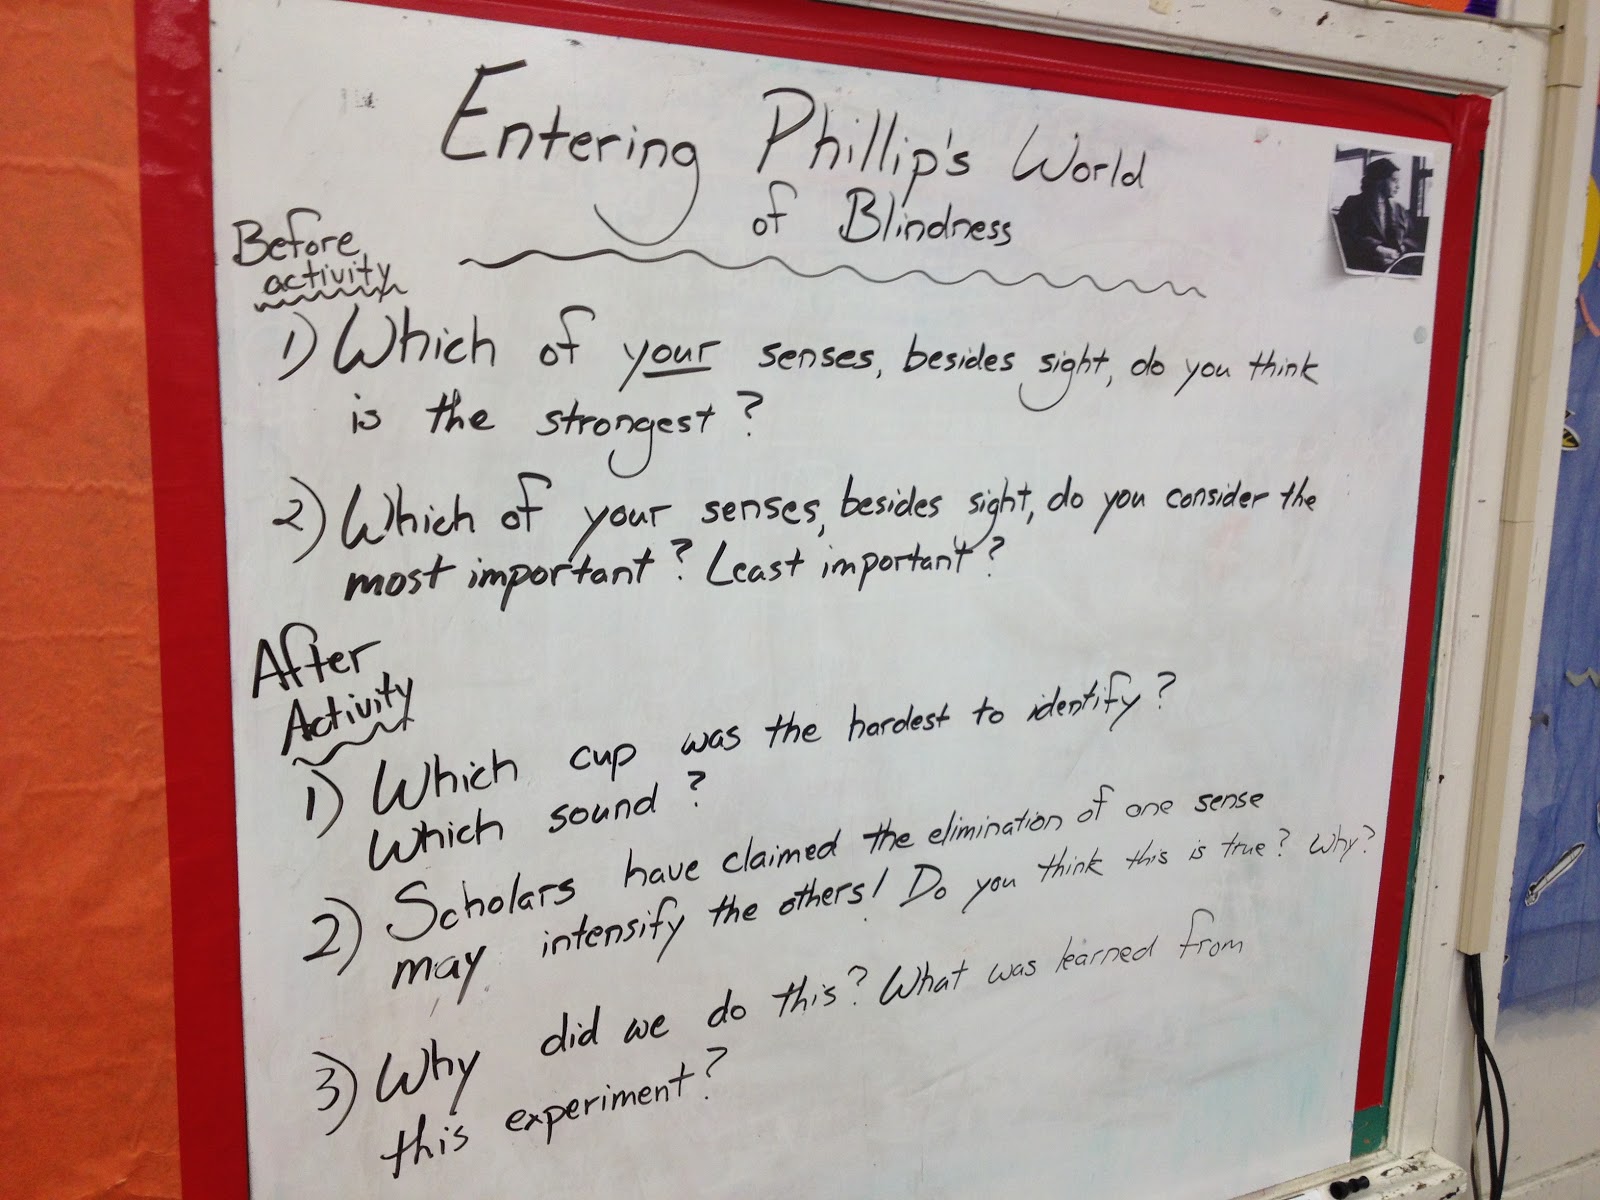 Entering Phillip's World
of Blindness
Before
activity
1) Which of your senses, besides sight, do you think
is the strongest?
2) Which of your senses, besides sight, do you consider the
most important? Least important?
After
Activity
1) Which cup was the hardest to identify?
Which sound?
2) Scholars have claimed the elimination of one sense
may intensify the others! Do you think this is true? Why?
3) Why did we do this? What was learned from
this experiment?